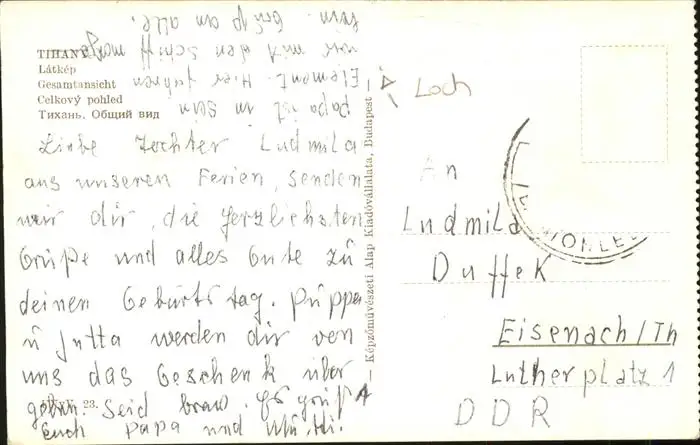 TIHANY
Látkép
Gesamtansicht
Celkový pohled
Тихань. Общий вид
Liebe Tochter Ludmila
aus unseren Ferien, senden
wir dir, die herzlichsten
Grüße und alles Gute zu
deinen Geburtstag. Puppa
u Jutta werden dir von
uns das Geschenk über
geben. Seid brav. Es grüßt
Euch Papa und Mutti.
23.
Papa ist in sein
Element. Hier fahren
wir mit den Schiff morgen
hin. Gruß an alle.
— Képzőművészeti Alap Kiadóvállalata, Budapest —
Loch
An
Ludmila
Duffek
Eisenach/Th
Lutherplatz 1
DDR